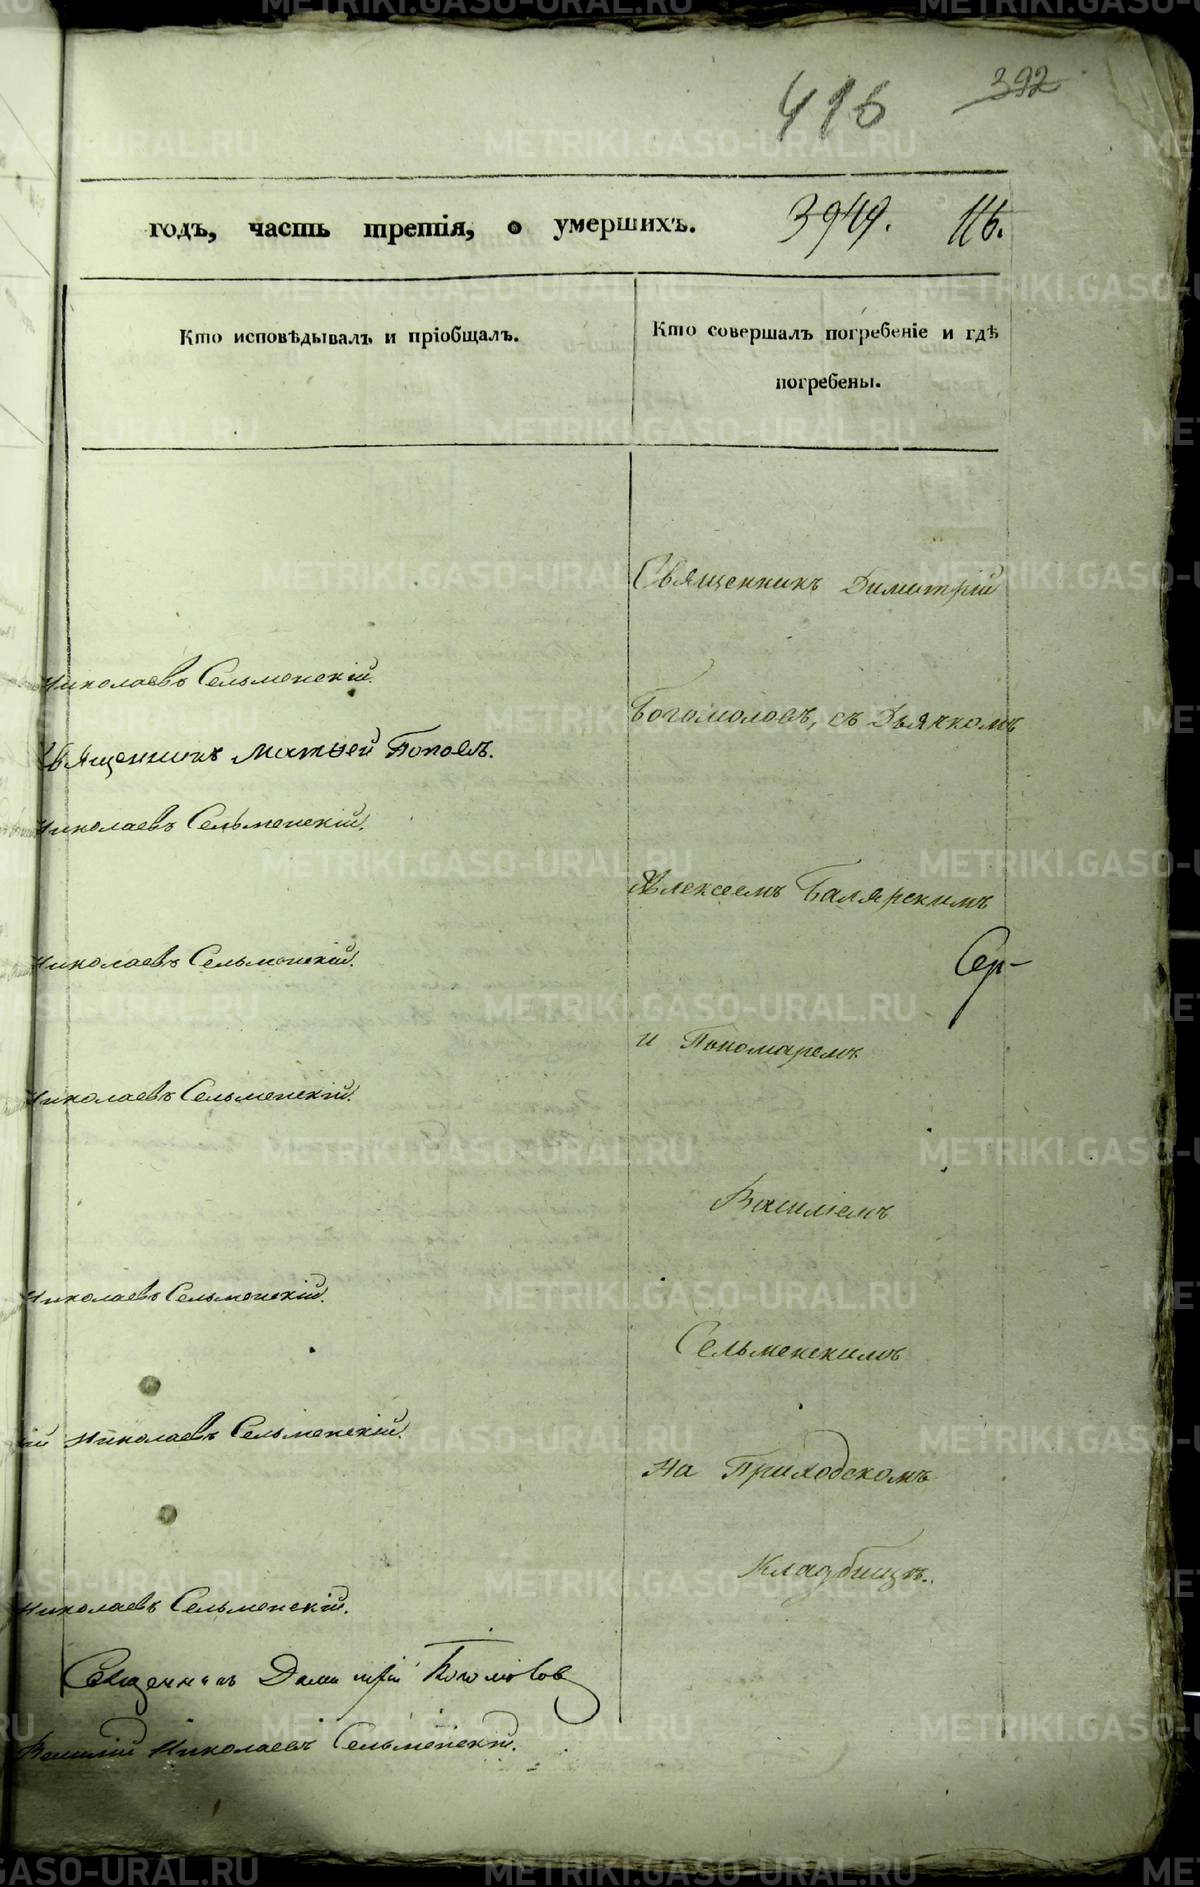 416 392
годъ, часть третія, о умершихъ. 3949. 116.
Кто исповѣдывалъ и пріобщалъ.
Кто совершалъ погребеніе и гдѣ
погребены.
Священникъ Димитрій
Николаевъ Сельменскій.
Богомоловъ, съ Дьячкомъ
Священникъ Матвей Поповъ.
Николаевъ Сельменскій.
Алексеемъ Балярскимъ
Николаевъ Сельменскій.
Сер-
и Пономаремъ
Николаевъ Сельменскій.
Василіемъ
Николаевъ Сельменскій.
Сельменскимъ
ій Николаевъ Сельменскій.
на Приходскомъ
Кладбищѣ.
Николаевъ Сельменскій.
Священникъ Димитрій Богомолов
Василий Николаевъ Сельменскій.
METRIKI.GASO-URAL.RU